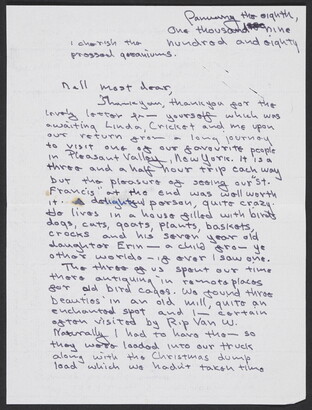 January the eighth,
One thousand nine
hundred and eighty
I cherish the
pressed geraniums.
Nell most dear,
Thank you, thank you for the
lovely letter from yourself which was
awaiting Linda, Cricket and me upon
our return from a long journey
to visit one of our favourite people
in Pleasant Valley, New York. It is a
three and a half hour trip each way
but the pleasure of seeing our "St.
Francis" at the end was well worth
it. A delightful person, quite crazy.
He lives in a house filled with birds
dogs, cats, goats, plants, baskets,
crocks and his seven year old
daughter Erin — a child from ye
other worlde — if ever I saw one.
The three of us spent our time
there antiquing in remote places
for old bird cages. We found three
beauties in an old mill, quite an
enchanted spot and I — certain
often visited by Rip Van W.
Naturally I had to have them — so
they were loaded into our truck
along with the Christmas dump
load which we hadn't taken time